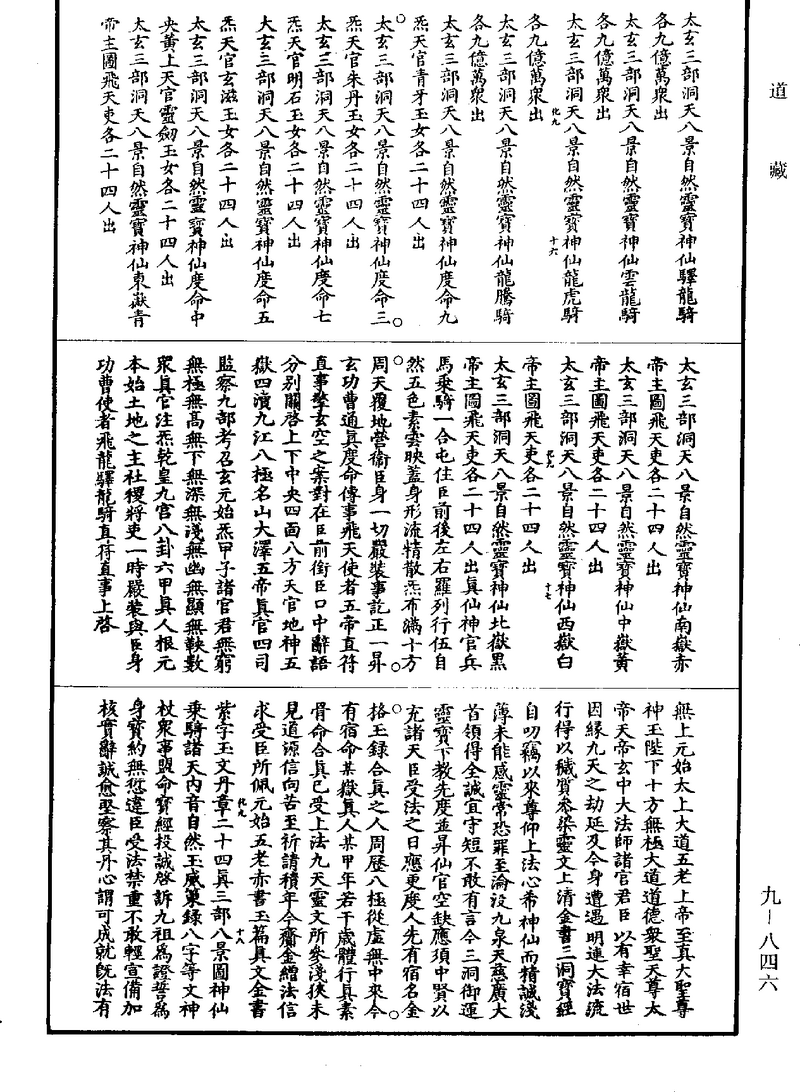 道藏
太玄三部洞天八景自然靈寶神仙驛龍騎
各九億萬衆出
太玄三部洞天八景自然靈寶神仙雲龍騎
各九億萬衆出
太玄三部洞天八景自然靈寶神仙龍虎騎
化九
十六
各九億萬衆出
太玄三部洞天八景自然靈寶神仙龍騰騎
各九億萬衆出
太玄三部洞天八景自然靈寶神仙度命九
炁天官青牙玉女各二十四人出
太玄三部洞天八景自然靈寶神仙度命三
炁天官朱丹玉女各二十四人出
太玄三部洞天八景自然靈寶神仙度命七
炁天官明石玉女各二十四人出
太玄三部洞天八景自然靈寶神仙度命五
炁天官玄滋玉女各二十四人出
太玄三部洞天八景自然靈寶神仙度命中
央黃上天官靈劒玉女各二十四人出
太玄三部洞天八景自然靈寶神仙東嶽青
帝主圖飛天吏各二十四人出
太玄三部洞天八景自然靈寶神仙南嶽赤
帝主圖飛天吏各二十四人出
太玄三部洞天八景自然靈寶神仙中嶽黃
帝主圖飛天吏各二十四人出
太玄三部洞天八景自然靈寶神仙西嶽白
化九
十七
帝主圖飛天吏各二十四人出
太玄三部洞天八景自然靈寶神仙北嶽黑
帝主圖飛天吏各二十四人出眞仙神官兵
馬乘騎一合屯住臣前後左右羅列行伍自
然五色素雲映蓋身形流精散炁布滿十方
周天覆地營衞臣身一切嚴裝事訖正一昇
玄功曹通眞度命傳事飛天使者五帝直符
直事擎玄空之案對在臣前銜臣口中辭語
分別關啓上下中央四面八方天官地神五
嶽四瀆九江八極名山大澤五帝眞官四司
監察九部考召玄元始炁甲子諸官君無窮
無極無高無下無深無淺無幽無顯無鞅數
衆眞官注炁乾皇九宮八卦六甲眞人根元
本始土地之主社稷將吏一時嚴裝與臣身
功曹使者飛龍驛龍騎直符直事上啓
無上元始太上大道五老上帝至眞大聖尊
神玉陛下十方無極大道道德衆聖天尊太
帝天帝玄中大法師諸官君臣以有幸宿世
因緣九天之劫延及今身遭遇明運大法流
行得以穢質叅染靈文上清金書三洞寶經
自叨竊以來尊仰上法心希神仙而精誠淺
薄未能感靈常恐罪至淪没九泉天慈廣大
首領得全誠宜守短不敢有言今三洞御運
靈寶下教先度並昇仙官空缺應須中賢以
充諸天臣受法之日應更度人先有宿名金
格玉錄合眞之人周歷八極從虛無中來今
有宿命某嶽眞人某甲年若干歲體行眞素
骨命合眞已受上法九天靈文所叅淺狹未
見道源信向苦至祈請積年今齎金繒法信
求受臣所佩元始五老赤書玉篇眞文金書
化九
十八
紫字玉文丹章二十四眞三部八景圖神仙
乘騎諸天內音自然玉威策錄八字等文神
杖衆事盟命寶經投誠啓訴九祖爲證誓爲
身寶約無愆違臣受法禁重不敢輕宣備加
核實辭誠愈堅察其丹心謂可成就旣法有
九-八四六